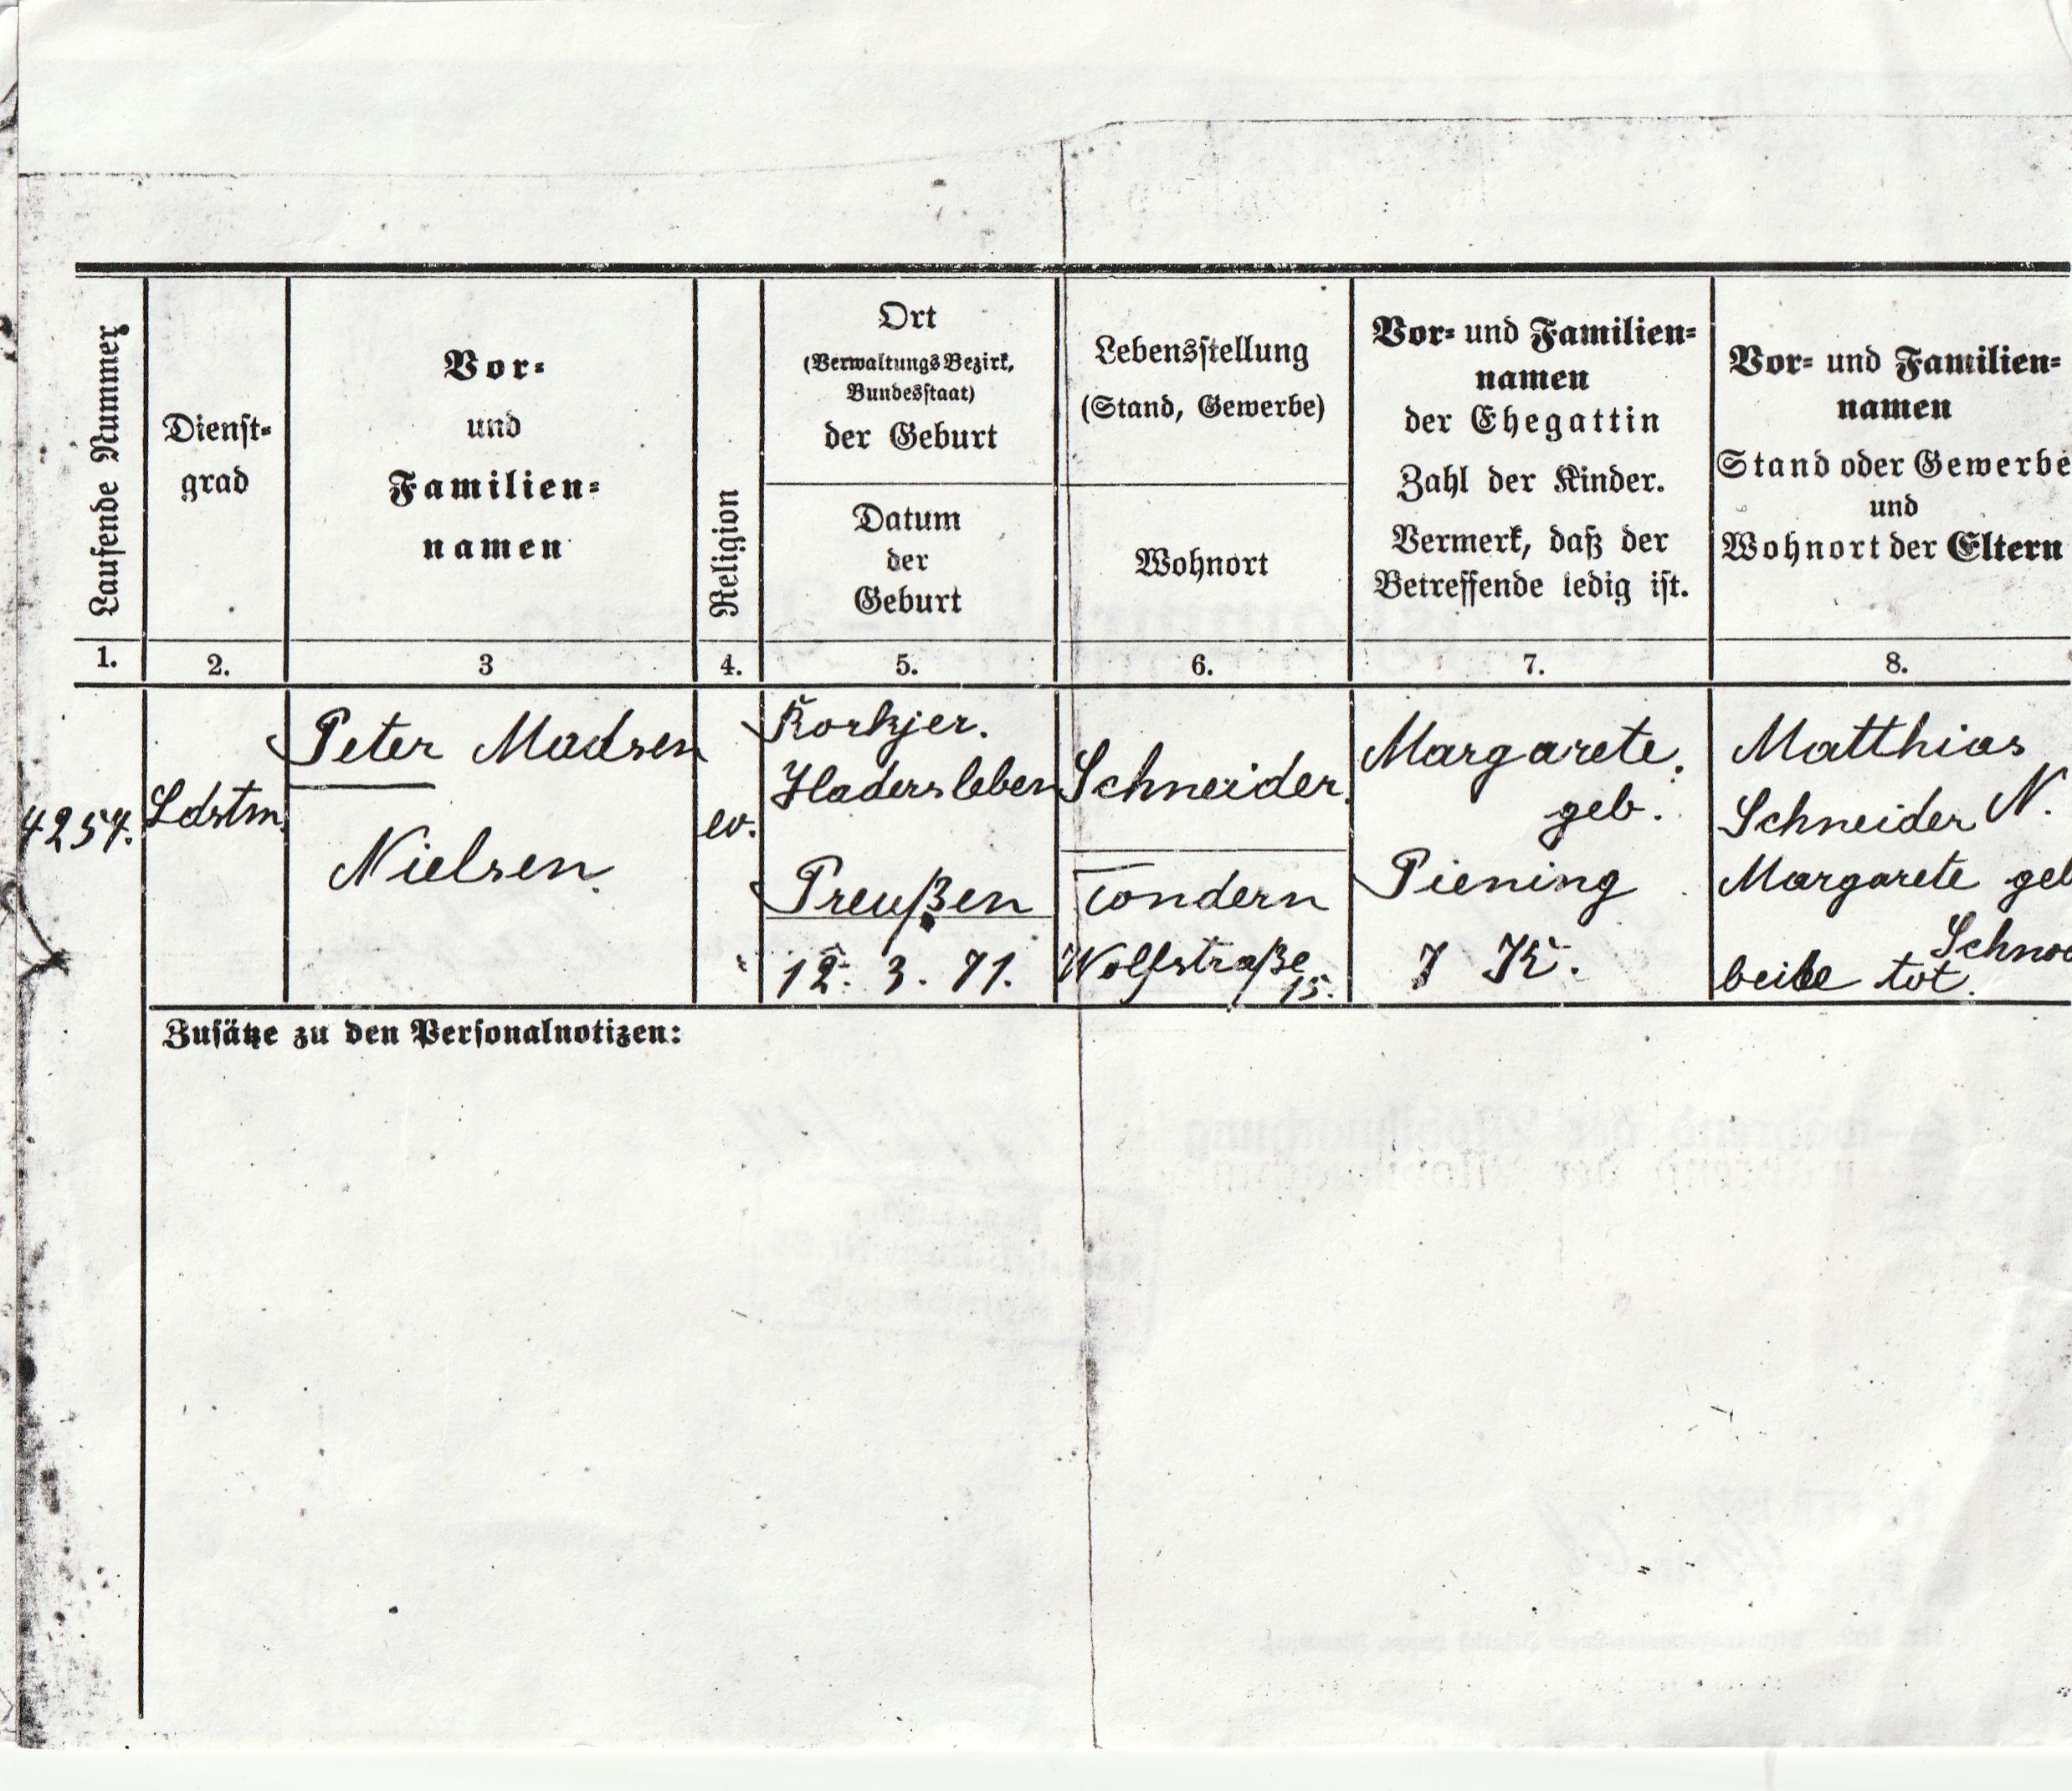 Laufende Nummer
Dienst-
grad
Vor-
und
Familien-
namen
Religion
Ort
(Verwaltungs Bezirk,
Bundesstaat)
der Geburt
Datum
der
Geburt
Lebensstellung
(Stand, Gewerbe)
Wohnort
Vor- und Familien-
namen
der Ehegattin
Zahl der Kinder.
Vermerk, daß der
Betreffende ledig ist.
Vor- und Familien-
namen
Stand oder Gewerbe
und
Wohnort der Eltern
1.
2.
3
4.
5.
6.
7.
8.
4254.
Ldstm.
Peter Madsen
Nielsen.
ev.
Korkjer.
Hadersleben
Preußen
12. 3. 71.
Schneider.
Tondern
Wolfstraße
15.
Margarete.
geb.
Piening
7 K.
Matthias
Schneider N.
Margarete geb
beide tot.
Zusätze zu den Personalnotizen: